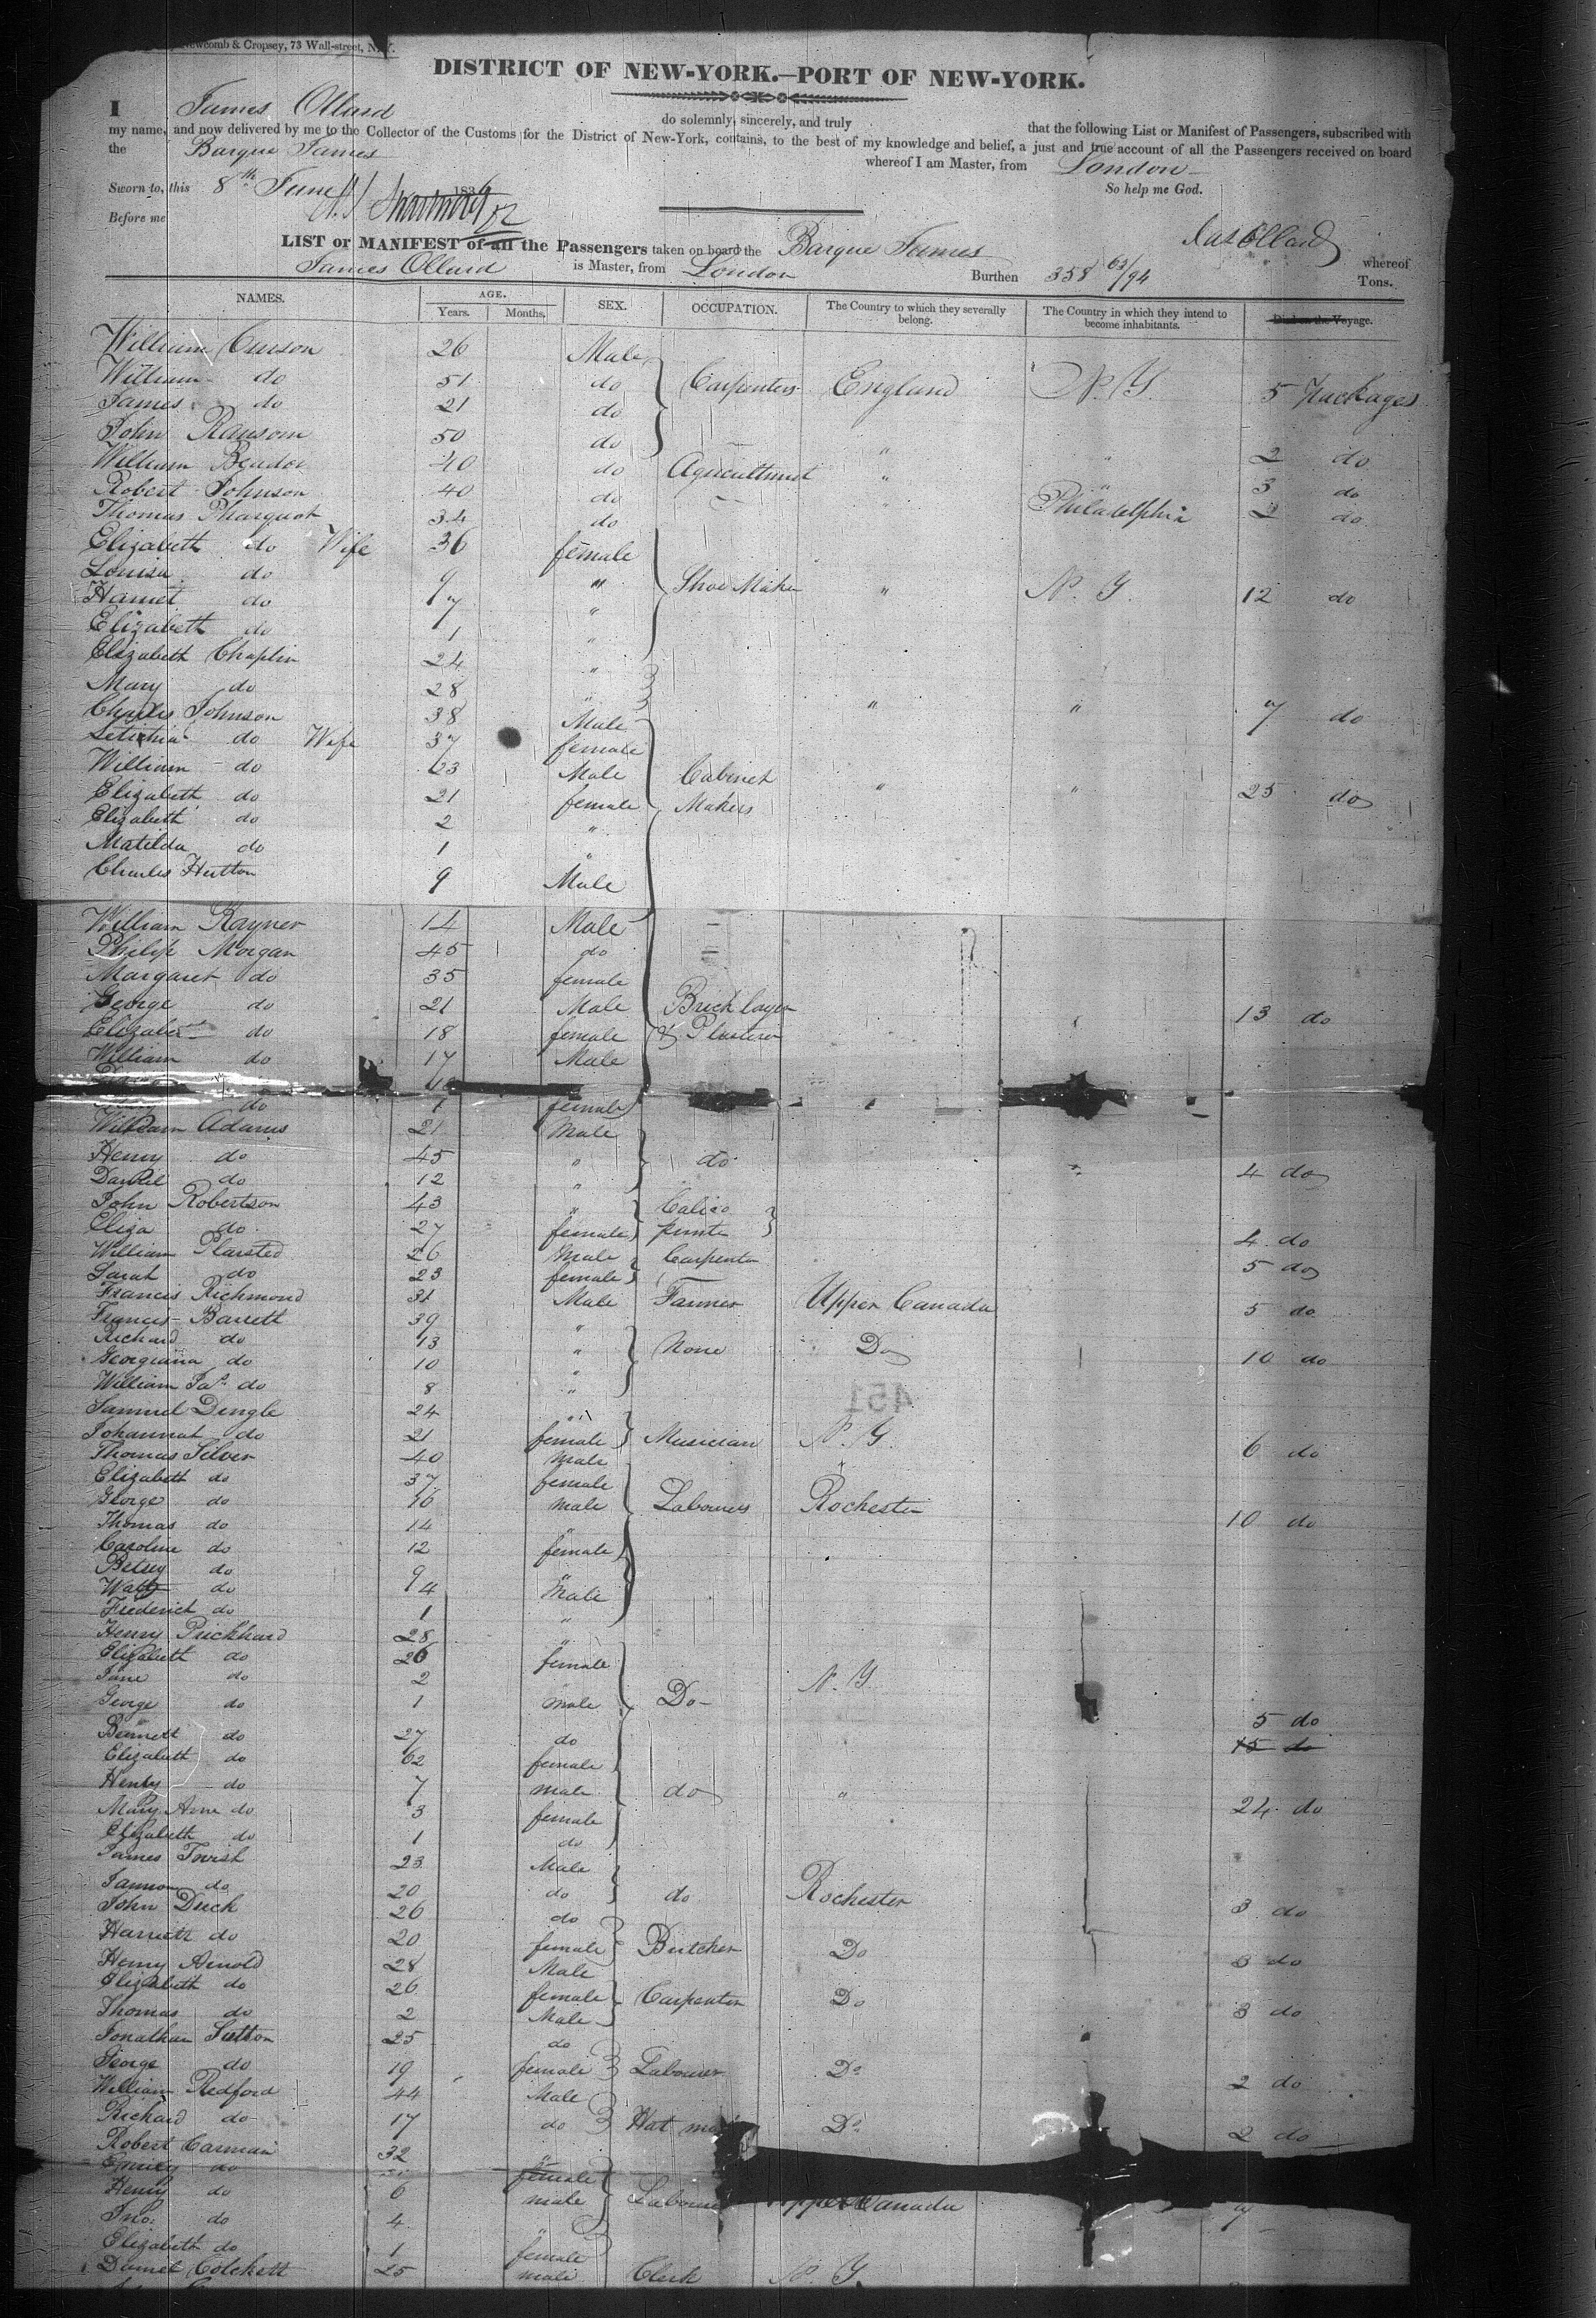 Newcomb & Cropsey, 73 Wall-street, N.Y.
DISTRICT OF NEW-YORK.—PORT OF NEW-YORK.
I James Ollard do solemnly, sincerely, and truly that the following List or Manifest of Passengers, subscribed with
my name, and now delivered by me to the Collector of the Customs for the District of New-York, contains, to the best of my knowledge and belief, a just and true account of all the Passengers received on board
the Barque James whereof I am Master, from London
Sworn to, this 8th June 1836 So help me God.
Before me
Jas Ollard
LIST or MANIFEST of all the Passengers taken on board the Barque James whereof
James Ollard is Master, from London Burthen 358 63/94 Tons.
NAMES. AGE. Years. Months. SEX. OCCUPATION. The Country to which they severally belong. The Country in which they intend to become inhabitants. Died on the Voyage.
William Curson 26 Male
William do 51 do Carpenters England N.Y. 5 Packages
James do 21 do
John Ransom 50 do " " 2 do
William 40 do Agriculturist " " 3 do
Robert Johnson 40 do " Philadelphia 2 do
Thomas Pharquot 34 do
Elizabeth do Wife 36 female
Louisa do 9 " Shoe Maker " N.Y. 12 do
Harriet do 7 "
Elizabeth do 1 "
Elizabeth Chaplin 24 "
Mary do 28 " " " 7 do
Charles Johnson 38 Male
Letitia do Wife 37 female
William do 23 Male Cabinet
Elizabeth do 21 female Makers " " 25 do
Elizabeth do 2 "
Matilda do 1 "
Charles Hutton 9 Male
William Rayner 14 Male
Philip Morgan 45 do
Margaret do 35 female
George do 21 Male Brick layer 13 do
Elizabeth do 18 female & Plasterer
William do 17 Male
do 1 female
William Adams 21 Male
Henry do 45 " do 4 do
Daniel do 12 "
John Robertson 43 " Calico
Eliza do 27 female printer 4 do
William Plarsted 26 Male Carpenter 5 do
Sarah do 23 female
Francis Richmond 31 Male Farmer Upper Canada 5 do
Francis Barrett 39 "
Richard do 13 " None Do 10 do
Georgiana do 10 "
William Jas. do 8 "
Samuel Dingle 24 "
Johannah do 21 female Musician N.Y. 6 do
Thomas Silver 40 Male
Elizabeth do 37 female
George do 16 male Labourers Rochester 10 do
Thomas do 14 "
Caroline do 12 female
Betsey do 9 "
do 4 Male
Frederick do 1 "
Henry Prickhard 28 "
Elizabeth do 26 female
Jane do 2 N.Y.
George do 1 male Do 5 do
Barnett do 27 do 15 do
Elizabeth do 62 female
Henry do 7 male do " 24 do
Mary Ann do 3 female
Elizabeth do 1 do
James Twist 23 Male
do 20 do do Rochester 3 do
John Duck 26 do
Harriett do 20 female Butcher Do 3 do
Henry Arnold 28 Male
Elizabeth do 26 female Carpenter Do 3 do
Thomas do 2 Male
Jonathan Sutton 25 do
George do 19 female Labourer Do 2 do
William Redford 44 Male
Richard do 17 do Hat Do 2 do
Robert Carman 32 "
Emily do female
Henry do 6 male Canada 7
Jno. do 4 "
Elizabeth do 1 female
Daniel Colchett 25 male Clerk N.Y.